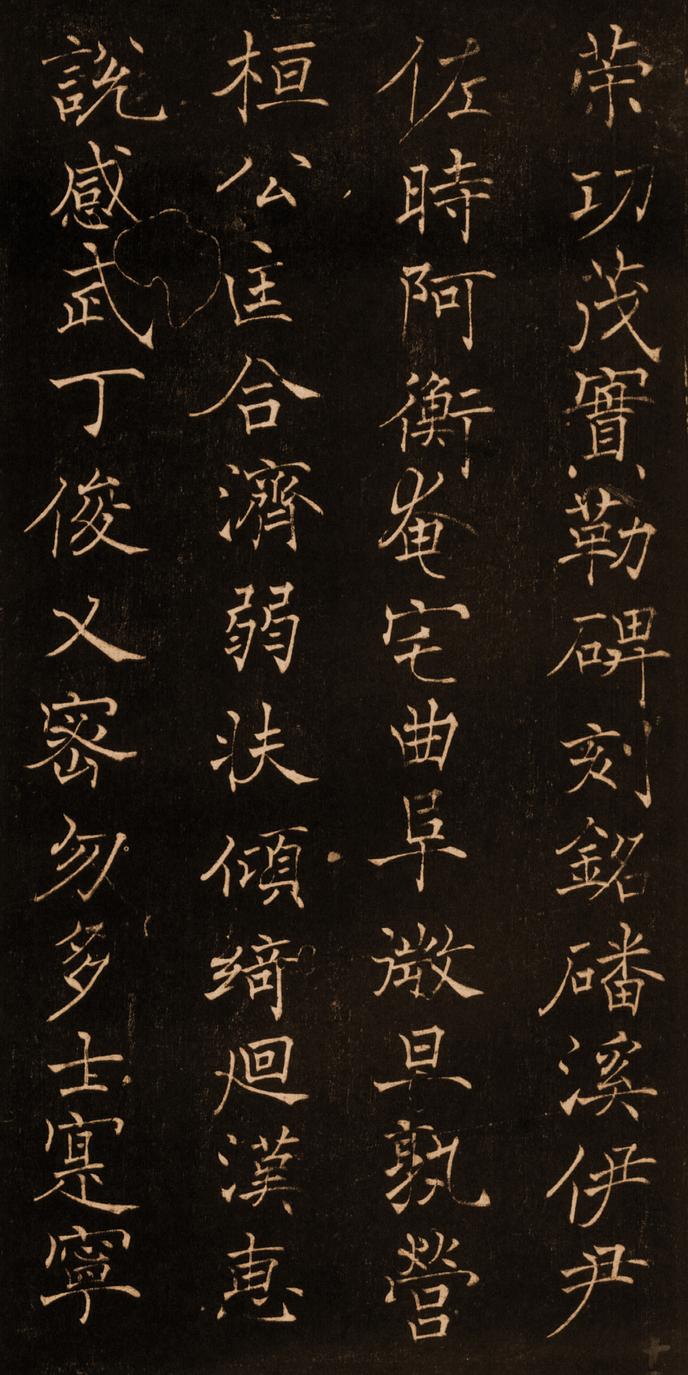 策功茂實勒碑刻銘磻溪伊尹
佐時阿衡奄宅曲阜微旦孰營
桓公匡合濟弱扶傾綺迴漢惠
說感武丁俊乂密勿多士寔寧